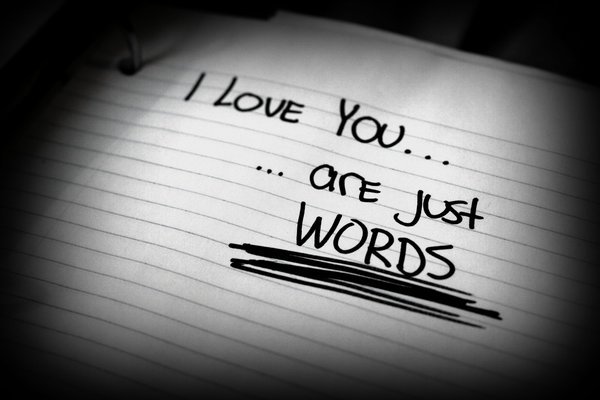 I LOVE YOU...
... are just
WORDS